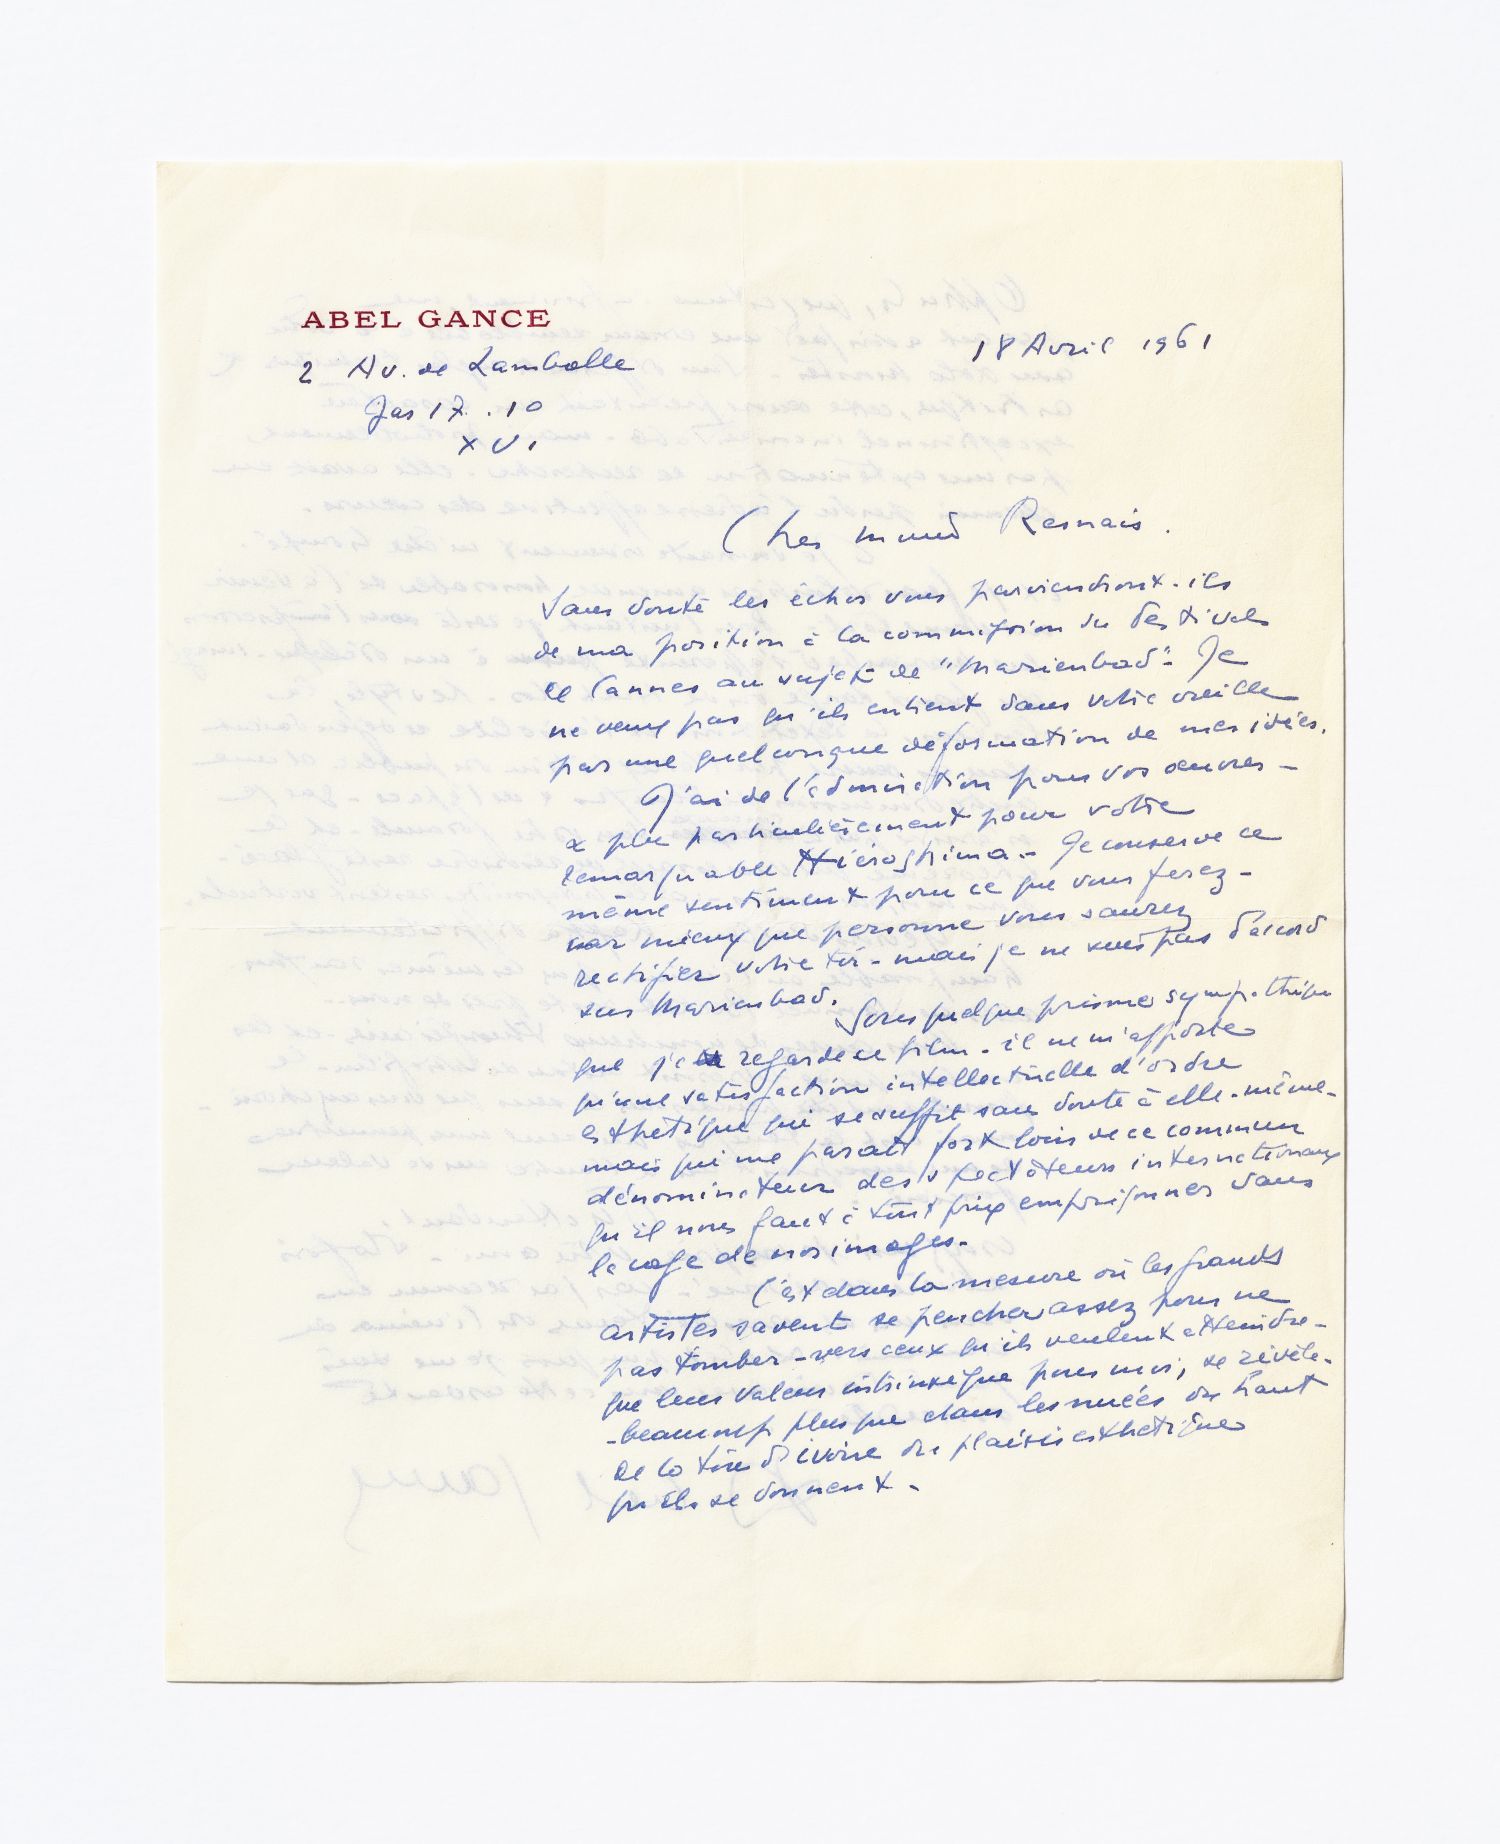 ABEL GANCE
18 Avril 1961
2 Av. de Lamballe
Jas 17.10
XVI
Cher Resnais.
Sans doute les échos vous parviendront-ils
de ma position à la commission du Festival
de Cannes au sujet de "Marienbad". Je
ne veux pas qu'ils entrent dans votre oreille
par une quelconque déformation de mes idées.
J'ai de l'admiration pour vos œuvres -
& plus particulièrement pour votre
remarquable Hiroshima - Je conserve ce
même sentiment pour ce que vous ferez -
car mieux que personne vous saurez
rectifier votre tir - mais je ne suis pas d'accord
sur Marienbad.
Sous quelque prisme sympathique
que je regarde ce film - il ne m'apporte
qu'une satisfaction intellectuelle d'ordre
esthétique qui se suffit sans doute à elle-même -
mais qui me paraît fort loin de ce commun
dénominateur des spectateurs internationaux
qu'il nous faut à tout prix emprisonner dans
la cage de nos images -
C'est dans la mesure où les grands
artistes savent se pencher assez pour ne
pas tomber - vers ceux qu'ils veulent atteindre -
que leur valeur intrinsèque pour moi, se révèle -
- beaucoup plus que dans les nuées du haut
de la tour d'ivoire du plaisir esthétique
qu'ils se donnent -